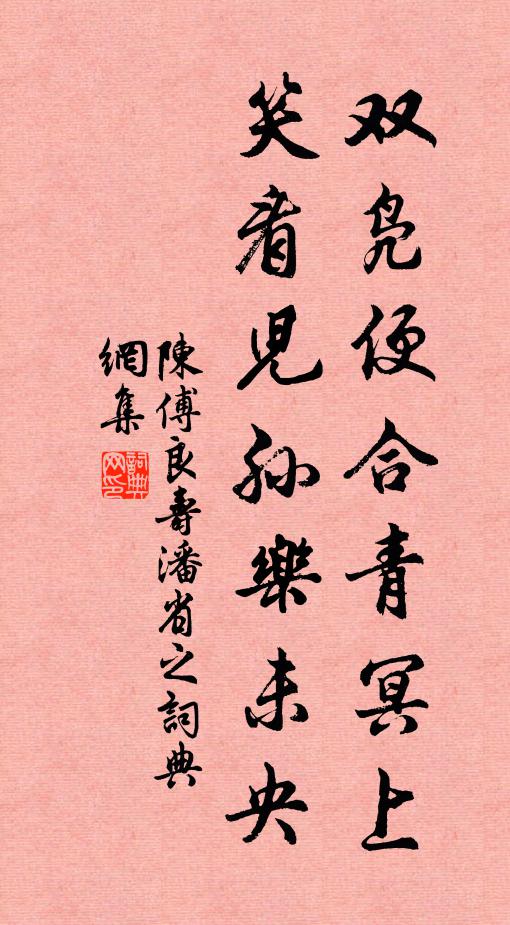 双凫便合青冥上
笑看児孙樂未央
陳傅良壽潘省之詞典
網集
詞典网印